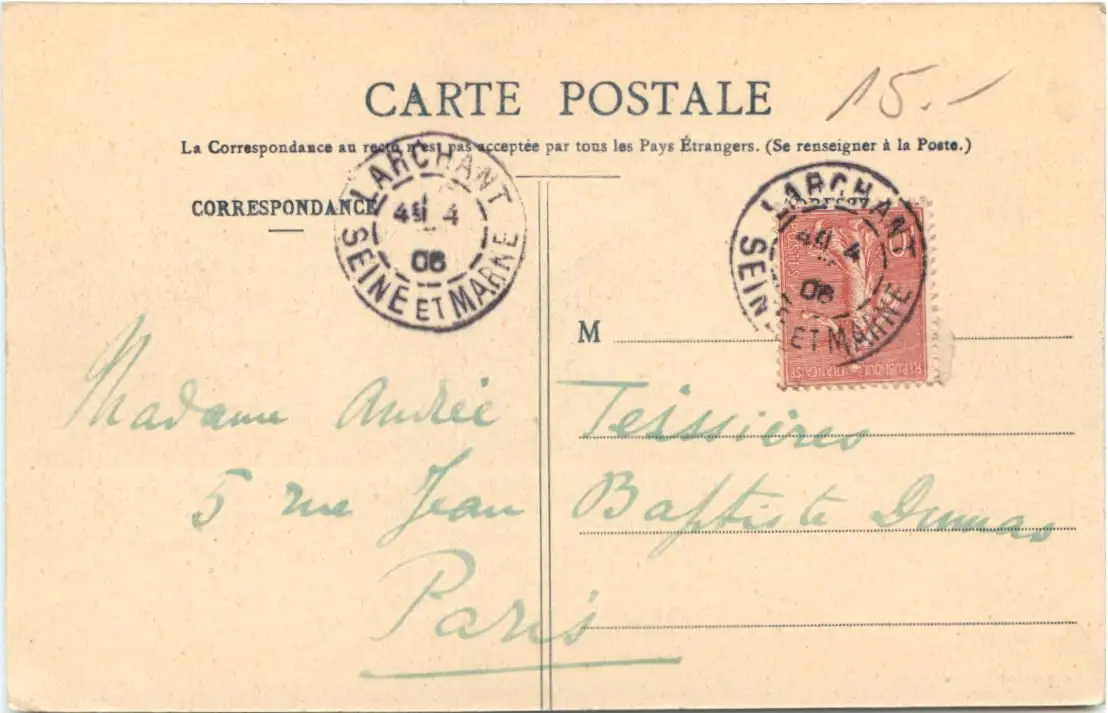 CARTE POSTALE
15.-
La Correspondance au recto n'est pas acceptée par tous les Pays Étrangers. (Se renseigner à la Poste.)
CORRESPONDANCE
LARCHANT
4
06
SEINE ET MARNE
LARCHANT
4
06
SEINE ET MARNE
POSTES
REPUBLIQUE FRANÇAISE
M
Madame Andrée Teissières
5 rue Jean Baptiste Dumas
Paris